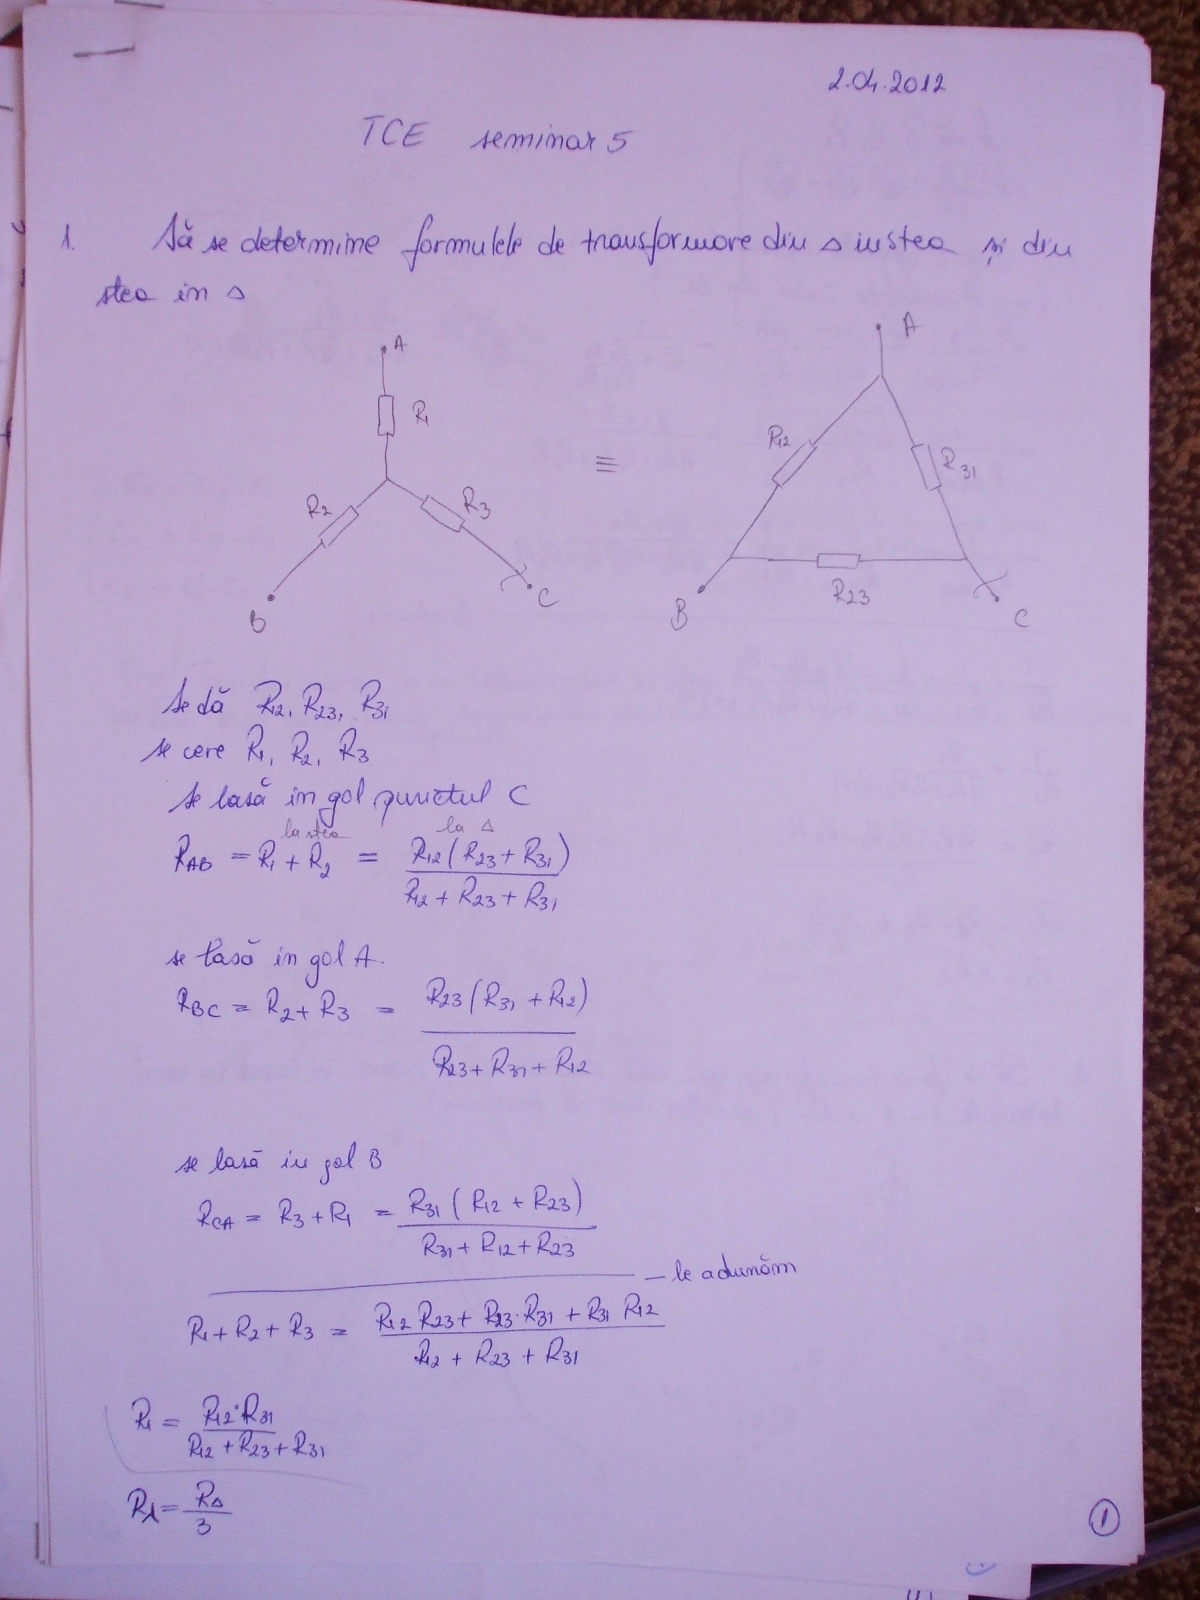 2.04.2012
TCE seminar 5
1. Să se determine formulele de transformare din Δ in stea și din
stea in Δ
A
R1
R2
R3
B
C
≡
A
R12
R31
R23
B
C
Se dă R12, R23, R31
se cere R1, R2, R3
Se lasă in gol punctul C
la stea la Δ
RAB = R1 + R2 = R12(R23 + R31)
R12 + R23 + R31
se lasă in gol A
RBC = R2 + R3 = R23(R31 + R12)
R23 + R31 + R12
se lasă in gol B
RCA = R3 + R1 = R31(R12 + R23)
R31 + R12 + R23
— le adunăm
R1 + R2 + R3 = R12 R23 + R23·R31 + R31 R12
R12 + R23 + R31
R1 = R12·R31
R12 + R23 + R31
Rλ = RΔ
3
1